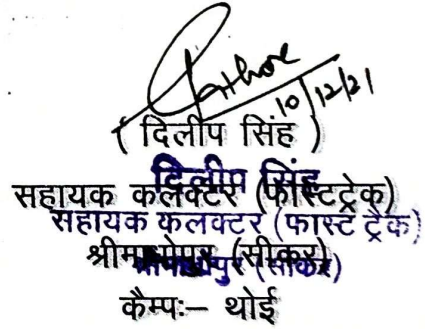 10/12/21
( दिलीप सिंह )
दिलीप सिंह
सहायक कलक्टर (फास्टट्रेक)
सहायक कलक्टर (फास्ट ट्रेक)
श्रीमाधोपुर (सीकर)
कैम्पः– थोई